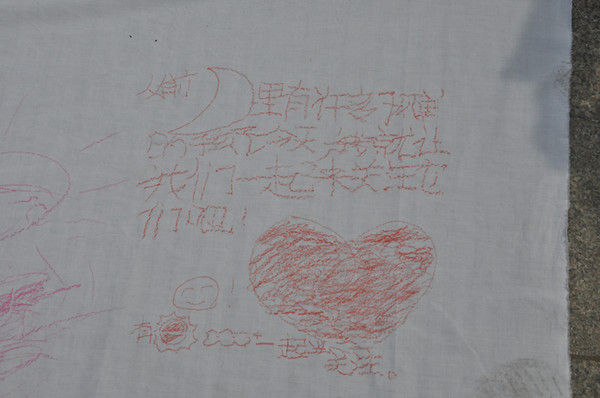 里有许多孤独
的孩子今天 就让
我们一起来关注它
们吧!
有 一起
关注。